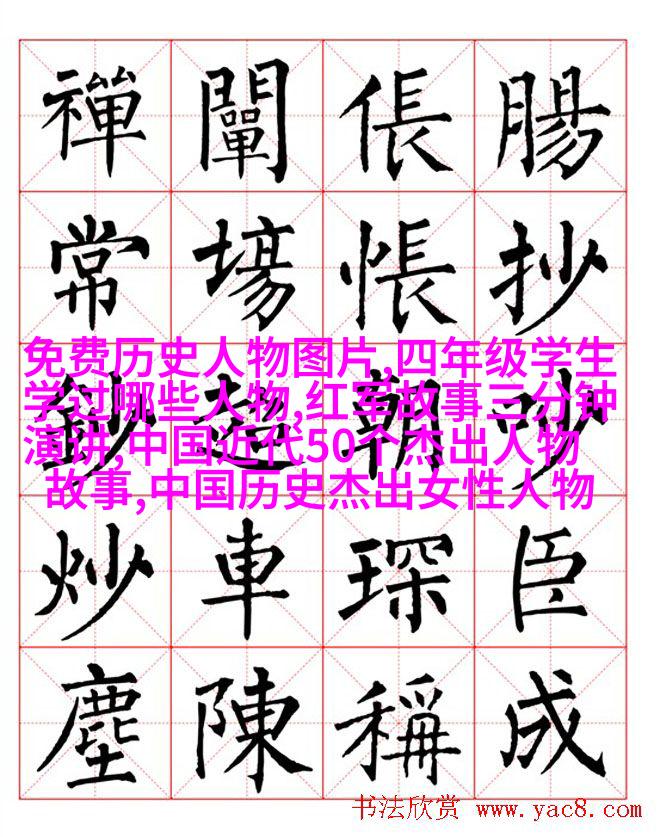 禪 闡 倀 腸
常 場 悵 抄
免费历史人物图片,四年级学生
学过哪些人物,红军故事三分钟
演讲,中国近代50个杰出人物
故事,中国历史杰出女性人物
鈔 超 朝 吵
炒 車 琛 臣
塵 陳 稱 成
书法欣赏 www.yac8.com